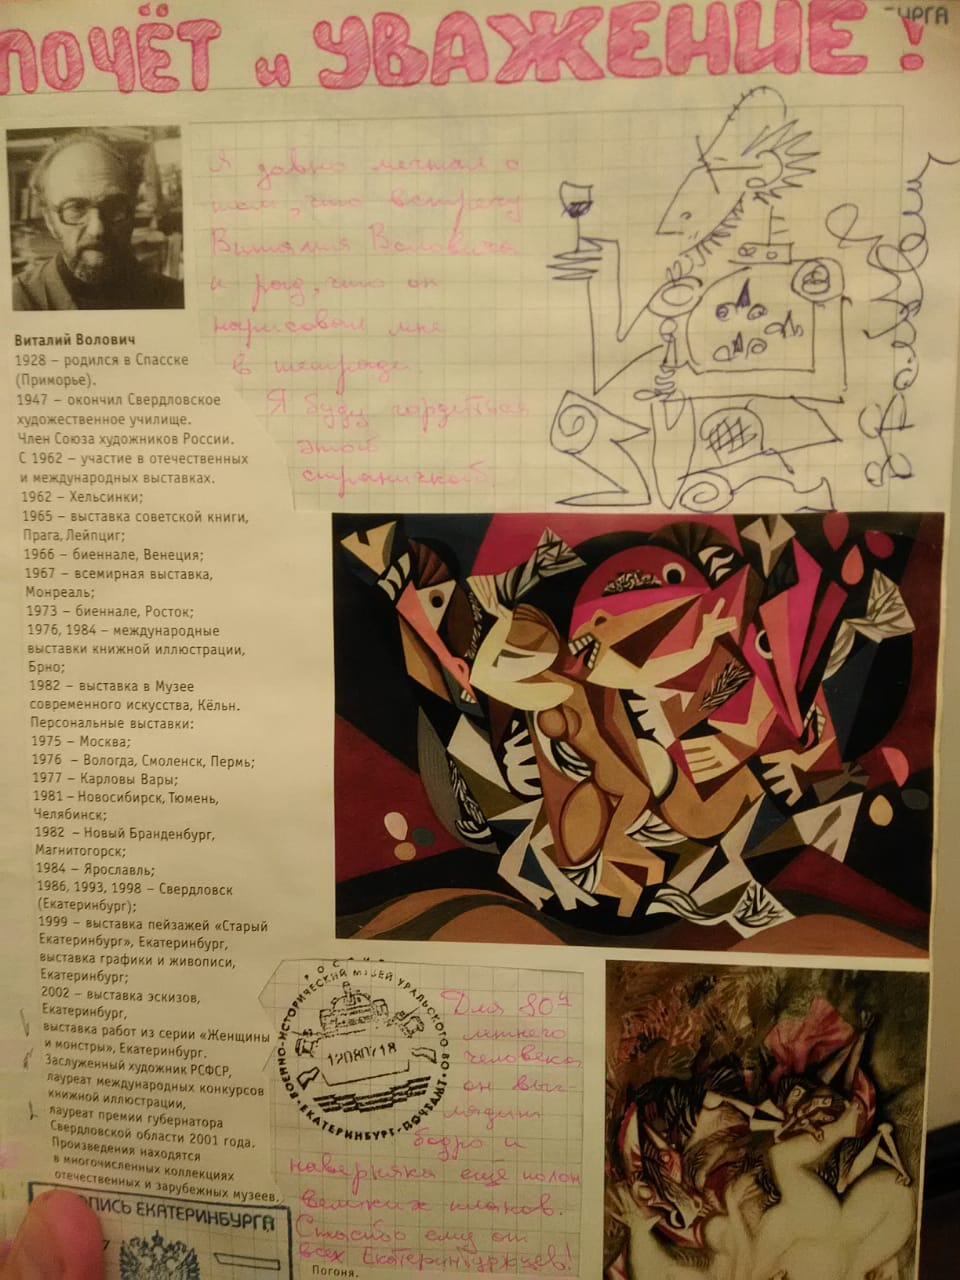 ПОЧЁТ и УВАЖЕНИЕ!
УРГА
Я давно мечтал о
том, что встречу
Виталия Воловича
и рад, что он
нарисовал мне
в тетради.
Я буду гордиться
этой
страничкой.
Виталий Волович
1928 – родился в Спасске
(Приморье).
1947 – окончил Свердловское
художественное училище.
Член Союза художников России.
С 1962 – участие в отечественных
и международных выставках.
1962 – Хельсинки;
1965 – выставка советской книги,
Прага, Лейпциг;
1966 – биеннале, Венеция;
1967 – всемирная выставка,
Монреаль;
1973 – биеннале, Росток;
1976, 1984 – международные
выставки книжной иллюстрации,
Брно;
1982 – выставка в Музее
современного искусства, Кёльн.
Персональные выставки:
1975 – Москва;
1976 – Вологда, Смоленск, Пермь;
1977 – Карловы Вары;
1981 – Новосибирск, Тюмень,
Челябинск;
1982 – Новый Бранденбург,
Магнитогорск;
1984 – Ярославль;
1986, 1993, 1998 – Свердловск
(Екатеринбург);
1999 – выставка пейзажей «Старый
Екатеринбург», Екатеринбург,
выставка графики и живописи,
Екатеринбург;
2002 – выставка эскизов,
Екатеринбург,
выставка работ из серии «Женщины
и монстры», Екатеринбург.
Заслуженный художник РСФСР,
лауреат международных конкурсов
книжной иллюстрации,
лауреат премии губернатора
Свердловской области 2001 года.
Произведения находятся
в многочисленных коллекциях
отечественных и зарубежных музеев.
РОССИЯ
ВОЕННО-ИСТОРИЧЕСКИЙ МУЗЕЙ УРАЛЬСКОГО ВО
ЕКАТЕРИНБУРГ ПОЧТАМТ
12080718
Для 80й
летнего
человека,
он выг-
лядит
бодро и
наверняка ещё полон
великих планов.
Спасибо ему от
всех Екатеринбуржцев!
ОПИСЬ ЕКАТЕРИНБУРГА
7
Погоня.